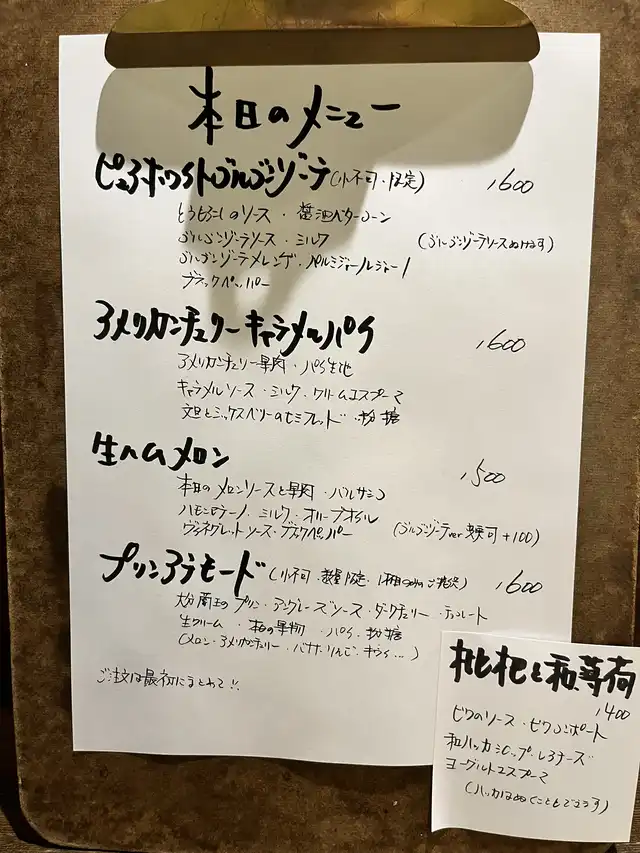 本日のメニュー
ピュアホワイトゴルゴンゾーラ(小不可・限定) 1,600
とうもろこしのソース・醤油バターコーン
ゴルゴンゾーラソース・ミルク (ゴルゴンゾーラソースぬけます)
ゴルゴンゾーラメレンゲ・パルミジャーノレジャーノ
ブラックペッパー
アメリカンチェリーキャラメルパイ 1,600
アメリカンチェリー果肉・パイ生地
キャラメルソース・ミルク・クリームエスプーマ
文旦とミックスベリーのセミフレッド・粉糖
生ハムメロン 1,500
本日のメロンソースと果肉・バルサミコ
ハモンセラーノ・ミルク・オリーブオイル
ヴィネグレットソース・ブラックペッパー (ゴルゴンゾーラver 変更可+100)
プリンアラモード (小不可・数量限定・1種目のみご提供) 1,600
大分蘭王のプリン・アングレーズソース・ダークチェリー・チョコレート
生クリーム・本日の果物・パイ・粉糖
(メロン・アメリカンチェリー・バナナ・りんご・キウイ…)
ご注文は最初にまとめて!!
枇杷と和薄荷
1,400
ビワのソース・ビワコンポート
和ハッカシロップ・レアチーズ
ヨーグルトエスプーマ
(ハッカはぬくこともできます)